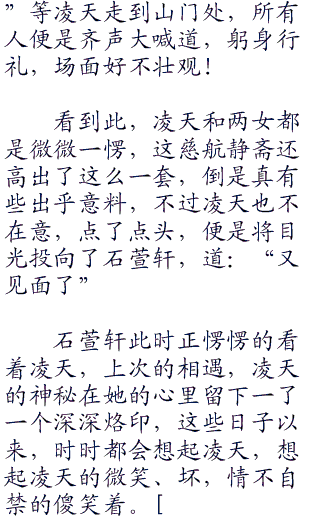 ”等凌天走到山门处，所有
人便是齐声大喊道，躬身行
礼，场面好不壮观！
看到此，凌天和两女都
是微微一愣，这慈航静斋还
高出了这么一套，倒是真有
些出乎意料，不过凌天也不
在意，点了点头，便是将目
光投向了石萱轩，道：“又
见面了”
石萱轩此时正愣愣的看
着凌天，上次的相遇，凌天
的神秘在她的心里留下一了
一个深深烙印，这些日子以
来，时时都会想起凌天，想
起凌天的微笑、坏，情不自
禁的傻笑着。[